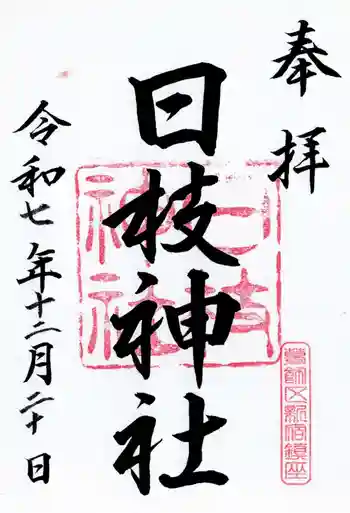 奉拝
日枝神社
令和七年十二月二十日
日枝神社
葛飾区新宿鎮座